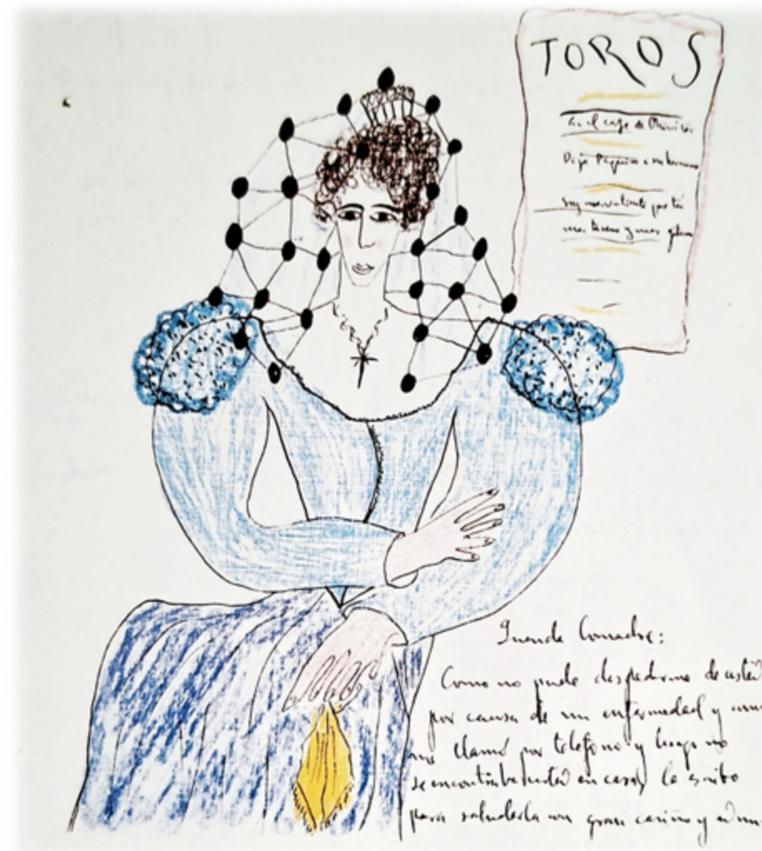 TOROS
en el café de Chinitas
Dijo Paquiro a su hermano
soy más valiente que tú
más torero y más gitano
Querida Comadre:
Como no pude despedirme de usted
por causa de mi enfermedad y
llamé por teléfono y luego no
se encontraba usted en casa, le escribo
para saludarla con gran cariño y